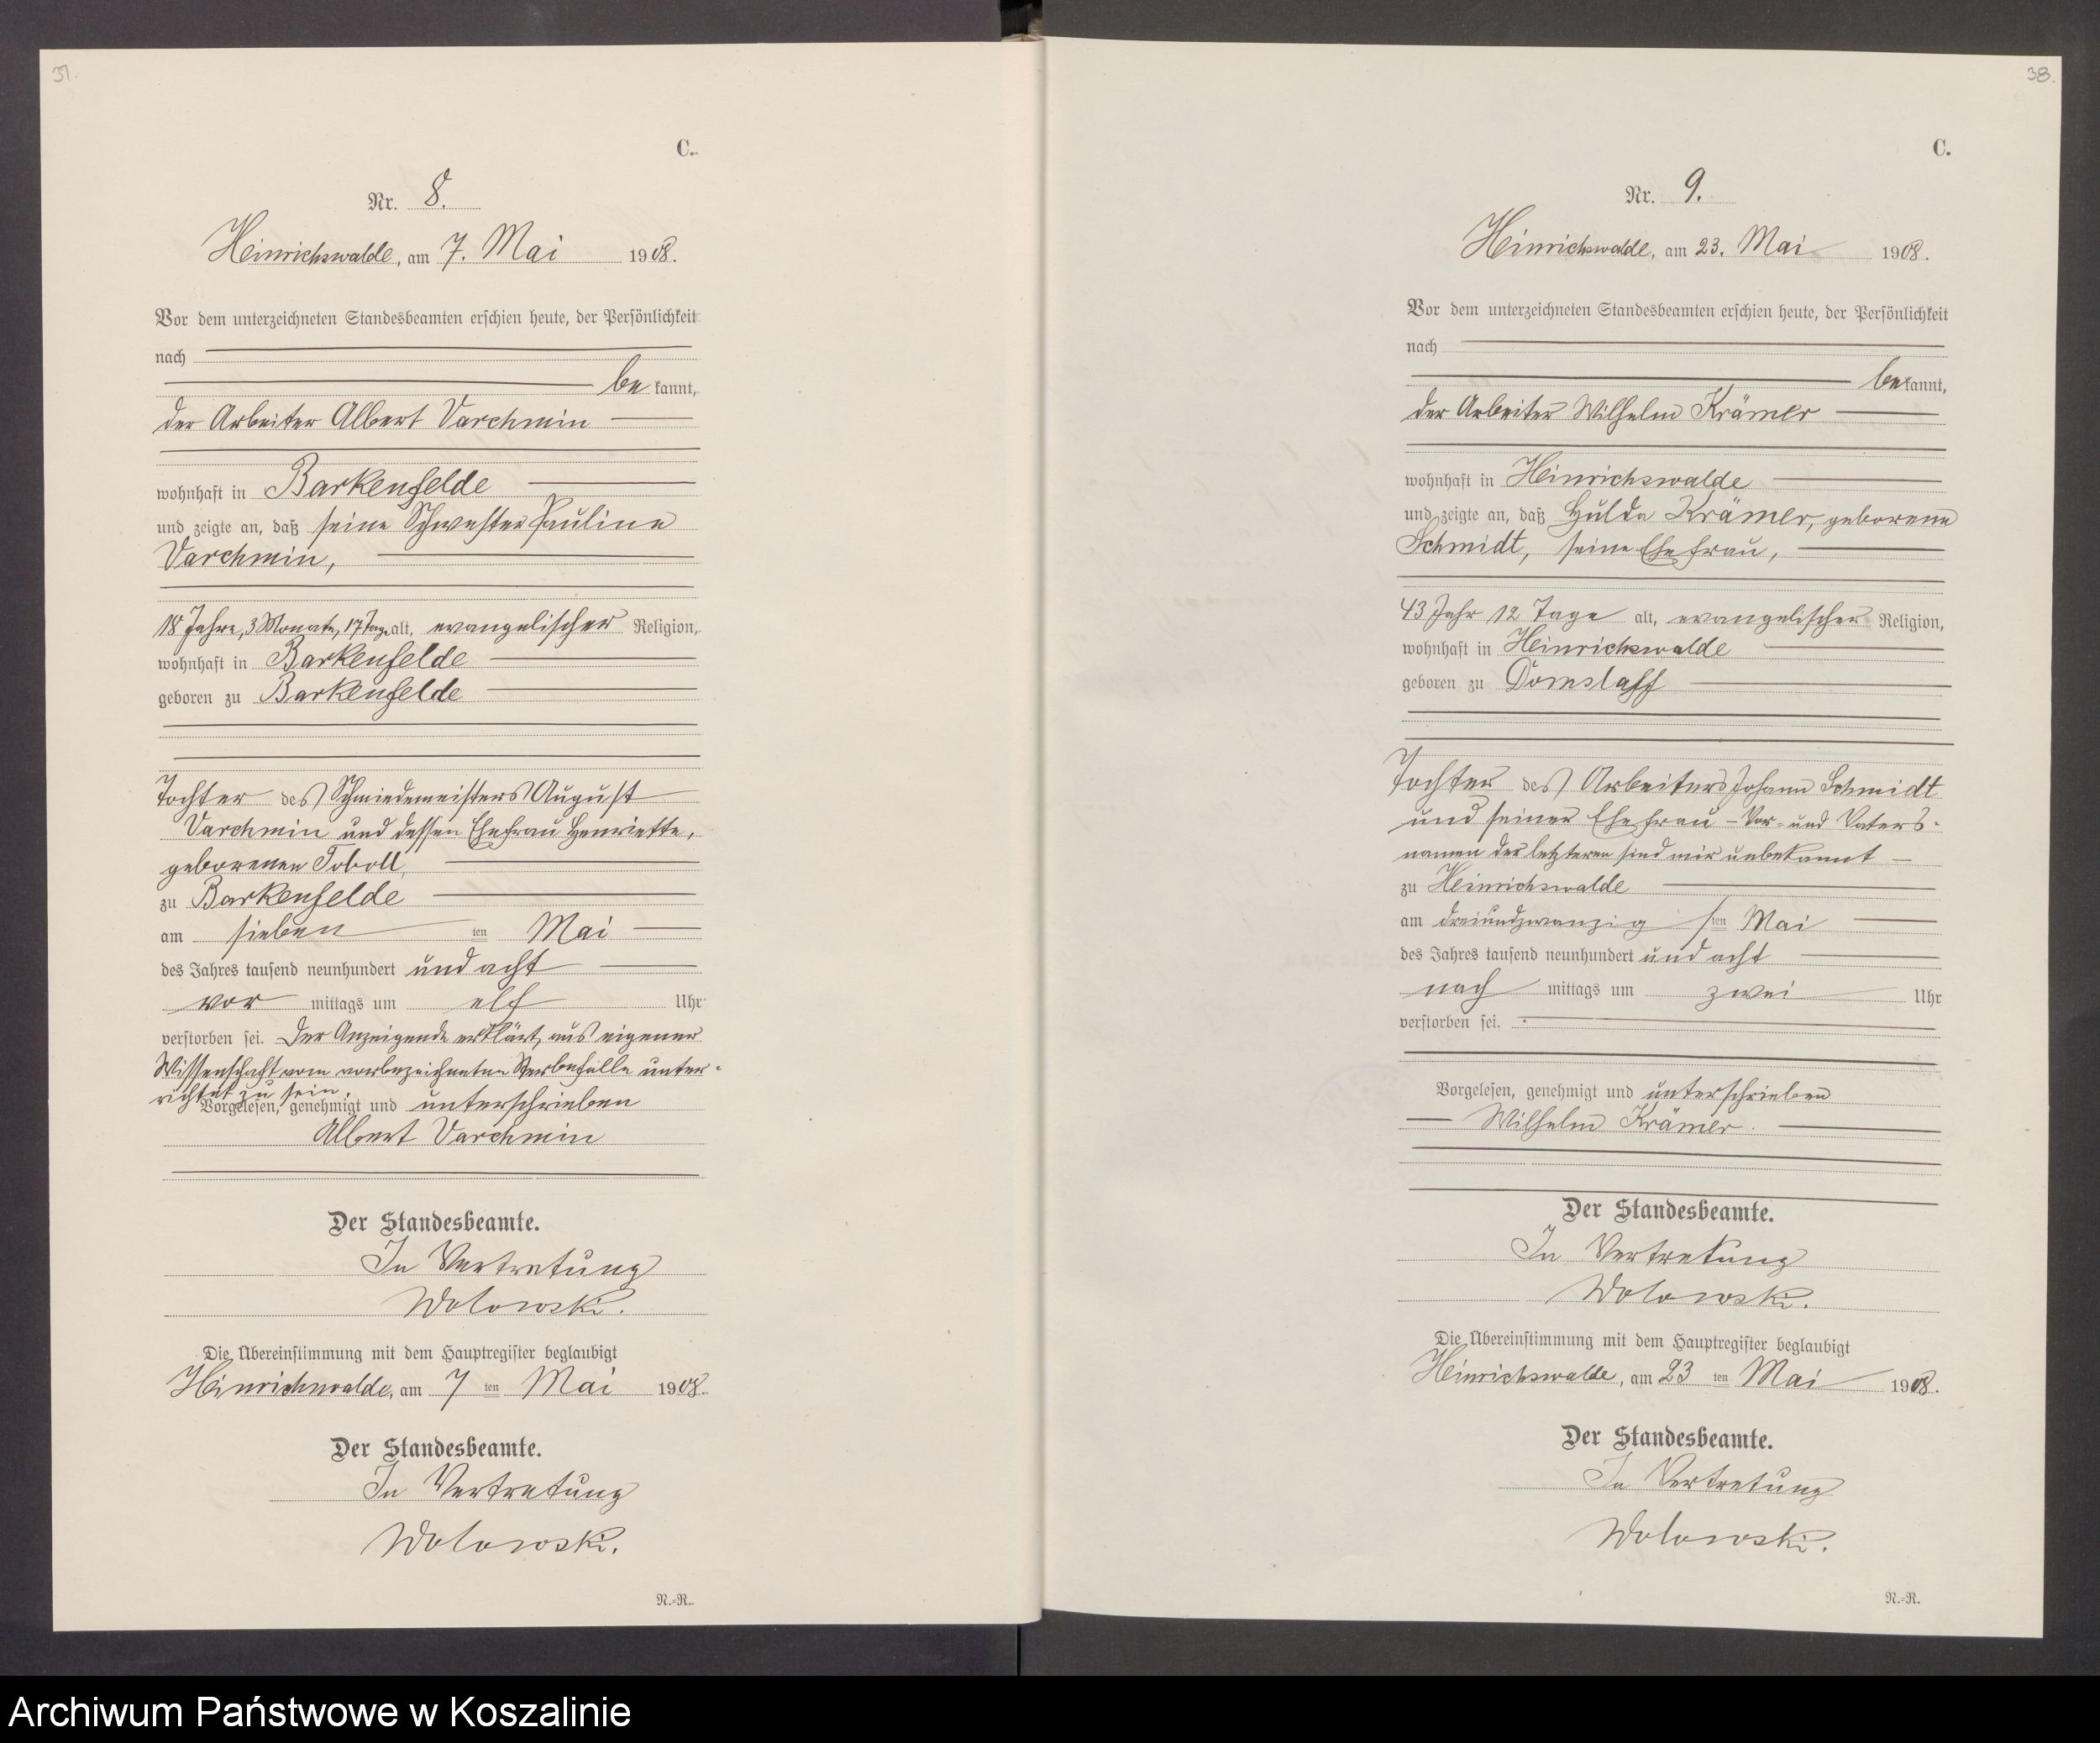 37.
C.
Nr. 8.
Heinrichswalde, am 7. Mai 1908.
Vor dem unterzeichneten Standesbeamten erschien heute, der Persönlichkeit
nach
bekannt,
der Arbeiter Albert Varchmin
wohnhaft in Barkenfelde
und zeigte an, daß seine Schwester Pauline
Varchmin,
18 Jahre, 3 Monate, 17 Tage alt, evangelischer Religion,
wohnhaft in Barkenfelde
geboren zu Barkenfelde
Tochter des Schmiedemeisters August
Varchmin und dessen Ehefrau Henriette,
geborenen Toboll,
zu Barkenfelde
am sieben ten Mai
des Jahres tausend neunhundert und acht
vor mittags um elf Uhr
verstorben sei. Der Anzeigende erklärt, aus eigener
Wissenschaft vom vorbezeichneten Sterbefalle unter-
richtet zu sein.
Vorgelesen, genehmigt und unterschrieben
Albert Varchmin
Der Standesbeamte.
In Vertretung
Wolowski.
Die Übereinstimmung mit dem Hauptregister beglaubigt
Heinrichswalde, am 7 ten Mai 1908.
Der Standesbeamte.
In Vertretung
Wolowski.
N.-R.
38.
C.
Nr. 9.
Heinrichswalde, am 23. Mai 1908.
Vor dem unterzeichneten Standesbeamten erschien heute, der Persönlichkeit
nach
bekannt,
der Arbeiter Wilhelm Krämer
wohnhaft in Heinrichswalde
und zeigte an, daß Hulda Krämer, geborene
Schmidt, seine Ehefrau,
43 Jahr 12 Tage alt, evangelischer Religion,
wohnhaft in Heinrichswalde
geboren zu Domslaff
Tochter des Arbeiters Johann Schmidt
und seiner Ehefrau – Vor- und Vaters-
namen der letzteren sind mir unbekannt –
zu Heinrichswalde
am dreiundzwanzig sten Mai
des Jahres tausend neunhundert und acht
nach mittags um zwei Uhr
verstorben sei.
Vorgelesen, genehmigt und unterschrieben
Wilhelm Krämer.
Der Standesbeamte.
In Vertretung
Wolowski.
Die Übereinstimmung mit dem Hauptregister beglaubigt
Heinrichswalde, am 23 ten Mai 1908.
Der Standesbeamte.
In Vertretung
Wolowski.
N.-R.
Archiwum Państwowe w Koszalinie